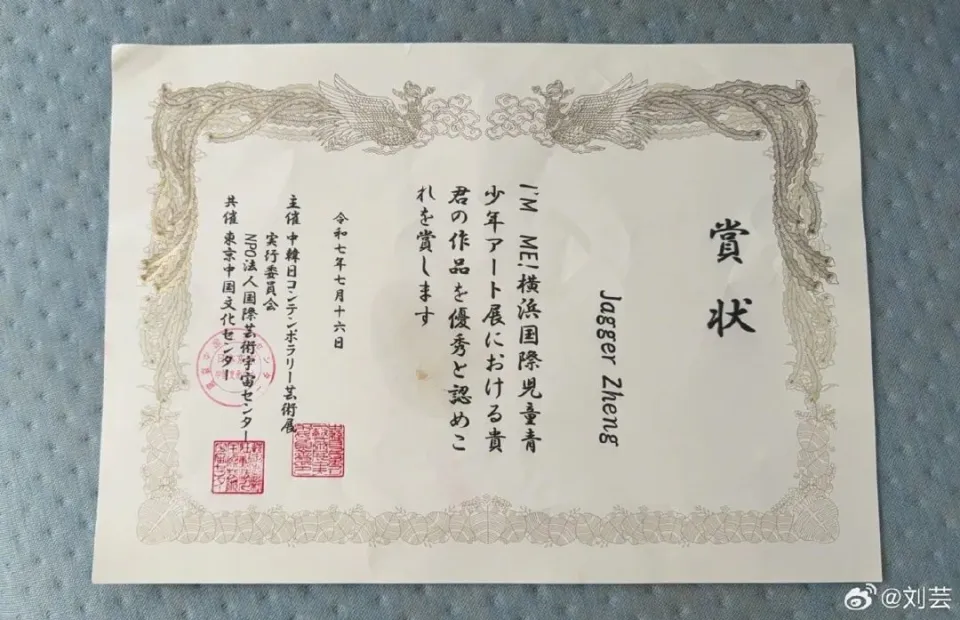 賞状
Jagger Zheng
I'M ME!横浜国際児童青
少年アート展における貴
君の作品を優秀と認めこ
れを賞します
令和七年七月十六日
主催 中韓日コンテンポラリー芸術展
実行委員会
NPO法人国際芸術宇宙センター
共催 東京中国文化センター
@刘芸